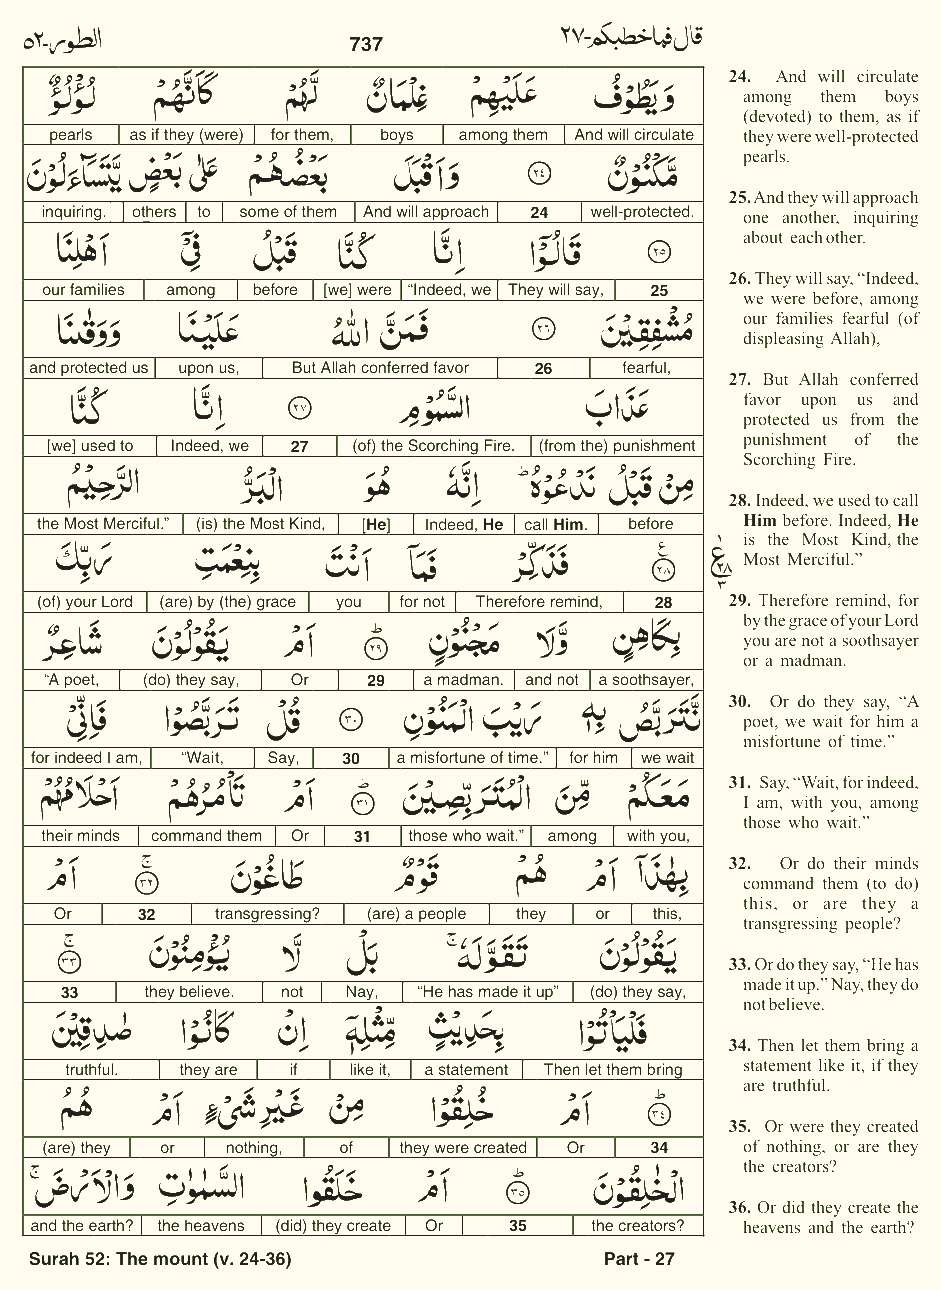 الطور-٥٢ 737 قال فما خطبكم-٢٧
وَيَطُوْفُ عَلَيْهِمْ غِلْمَانٌ لَّهُمْ كَاَنَّهُمْ لُؤْلُؤٌ
pearls as if they (were) for them, boys among them And will circulate
مَّكْنُوْنٌ ٢٤ وَاَقْبَلَ بَعْضُهُمْ عَلٰى بَعْضٍ يَّتَسَآءَلُوْنَ
inquiring. others to some of them And will approach 24 well-protected.
٢٥ قَالُوْٓا اِنَّا كُنَّا قَبْلُ فِيْٓ اَهْلِنَا
our families among before [we] were “Indeed, we They will say, 25
مُشْفِقِيْنَ ٢٦ فَمَنَّ اللّٰهُ عَلَيْنَا وَوَقٰىنَا
and protected us upon us, But Allah conferred favor 26 fearful,
عَذَابَ السَّمُوْمِ ٢٧ اِنَّا كُنَّا
[we] used to Indeed, we 27 (of) the Scorching Fire. (from the) punishment
مِنْ قَبْلُ نَدْعُوْهُ ؕ اِنَّهٗ هُوَ الْبَرُّ الرَّحِيْمُ
the Most Merciful.” (is) the Most Kind, [He] Indeed, He call Him. before
٢٨ فَذَكِّرْ فَمَآ اَنْتَ بِنِعْمَتِ رَبِّكَ
(of) your Lord (are) by (the) grace you for not Therefore remind, 28
بِكَاهِنٍ وَّلَا مَجْنُوْنٍ ٢٩ اَمْ يَقُوْلُوْنَ شَاعِرٌ
“A poet, (do) they say, Or 29 a madman. and not a soothsayer,
نَّتَرَبَّصُ بِهٖ رَيْبَ الْمَنُوْنِ ٣٠ قُلْ تَرَبَّصُوْا فَاِنِّيْ
for indeed I am, “Wait, Say, 30 a misfortune of time.” for him we wait
مَعَكُمْ مِّنَ الْمُتَرَبِّصِيْنَ ٣١ اَمْ تَاْمُرُهُمْ اَحْلَامُهُمْ
their minds command them Or 31 those who wait.” among with you,
بِهٰذَآ اَمْ هُمْ قَوْمٌ طَاغُوْنَ ٣٢ اَمْ
Or 32 transgressing? (are) a people they or this,
يَقُوْلُوْنَ تَقَوَّلَهٗ ۚ بَلْ لَّا يُؤْمِنُوْنَ ٣٣
33 they believe. not Nay, “He has made it up” (do) they say,
فَلْيَاْتُوْا بِحَدِيْثٍ مِّثْلِهٖٓ اِنْ كَانُوْا صٰدِقِيْنَ
truthful. they are if like it, a statement Then let them bring
٣٤ اَمْ خُلِقُوْا مِنْ غَيْرِ شَيْءٍ اَمْ هُمُ
(are) they or nothing, of they were created Or 34
الْخٰلِقُوْنَ ٣٥ اَمْ خَلَقُوا السَّمٰوٰتِ وَالْاَرْضَ ۚ
and the earth? the heavens (did) they create Or 35 the creators?
24. And will circulate
among them boys
(devoted) to them, as if
they were well-protected
pearls.
25. And they will approach
one another, inquiring
about each other.
26. They will say, “Indeed,
we were before, among
our families fearful (of
displeasing Allah),
27. But Allah conferred
favor upon us and
protected us from the
punishment of the
Scorching Fire.
28. Indeed, we used to call
Him before. Indeed, He
is the Most Kind, the
Most Merciful.”
١
ع
٢٨
٣
29. Therefore remind, for
by the grace of your Lord
you are not a soothsayer
or a madman.
30. Or do they say, “A
poet, we wait for him a
misfortune of time.”
31. Say, “Wait, for indeed,
I am, with you, among
those who wait.”
32. Or do their minds
command them (to do)
this, or are they a
transgressing people?
33. Or do they say, “He has
made it up.” Nay, they do
not believe.
34. Then let them bring a
statement like it, if they
are truthful.
35. Or were they created
of nothing, or are they
the creators?
36. Or did they create the
heavens and the earth?
Surah 52: The mount (v. 24-36) Part - 27